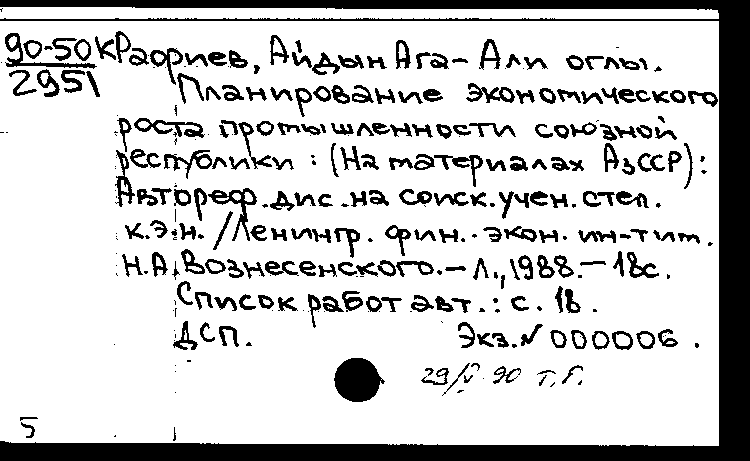 90-50К
2951
Рзориев, Айдын Ага-Али оглы.
Планирование экономического
роста промышленности союзной
республики : (На материалах АзССР) :
Автореф. дис. на соиск. учен. степ.
к.э.н. / Ленингр. фин.-экон. ин-т им.
Н.А. Вознесенского. - Л., 1988. - 18с.
Список работ авт.: с. 18.
ДСП. Экз. № 000006.
29/V 90 Т.Г.
5